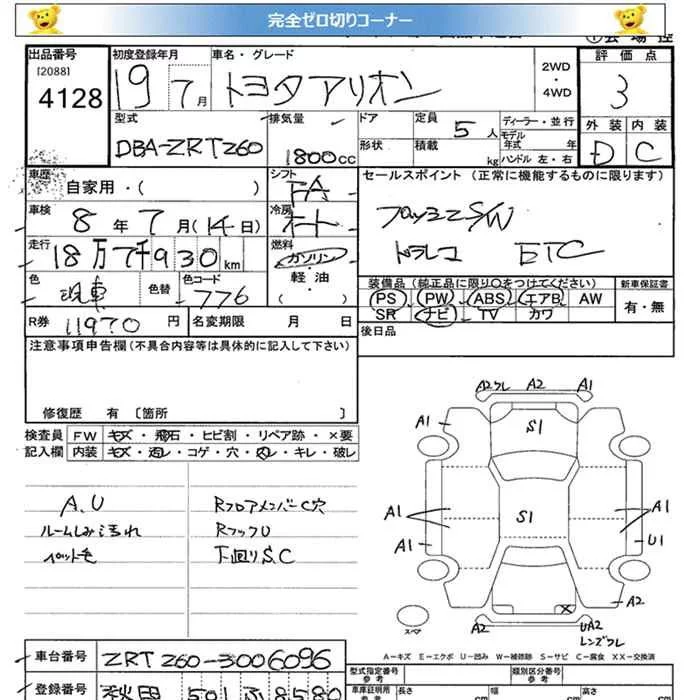 完全ゼロ切りコーナー
出品番号
[2088]
4128
初度登録年月
19 7月
車名・グレード
トヨタアリオン
2WD
・
4WD
評価点
3
外装 内装
D C
型式
DBA-ZRT260
排気量
1800cc
ドア
定員
5人
ディーラー・並行
形状
積載
kg
モデル
年式 年
ハンドル 左・右
車歴
自家用・( )
シフト
FA
セールスポイント (正常に機能するものに限ります)
車検
8年7月(14日)
冷房
オート
S/W
ドラレコ ETC
走行
18万7千930km
燃料
ガソリン
・
軽油
・
( )
色
現車
色替
色コード
776
装備品 (純正品に限り○をつけてください)
新車保証書
PS PW ABS エアB AW
SR ナビ TV カワ
有・無
R券 11970円
名変期限 月 日
後日品
注意事項申告欄(不具合内容等は具体的に記入して下さい)
修復歴 有 〔箇所 〕
検査員 FW キズ・飛石・ヒビ割・リペア跡・×要
記入欄 内装 キズ・汚レ・コゲ・穴・凹レ・キレ・破レ
A.U
ルームしみ汚れ
ペット毛
RフロアメンバーC穴
RフックU
下回りS.C
A2フレ A2 A1
A1
S1
A1
A1
S1
A1
U1
A2
A2
UA2
レンズフレ
スペア
A−キズ E−エクボ U−凹み W−補修跡 S−サビ C−腐食 XX−交換済
車台番号 ZRT260-3006096
型式指定番号
参考
類別区分番号
参考
登録番号 秋田 501 ふ 8580
車庫証明用
参考
長さ
cm
幅
cm
高さ
cm